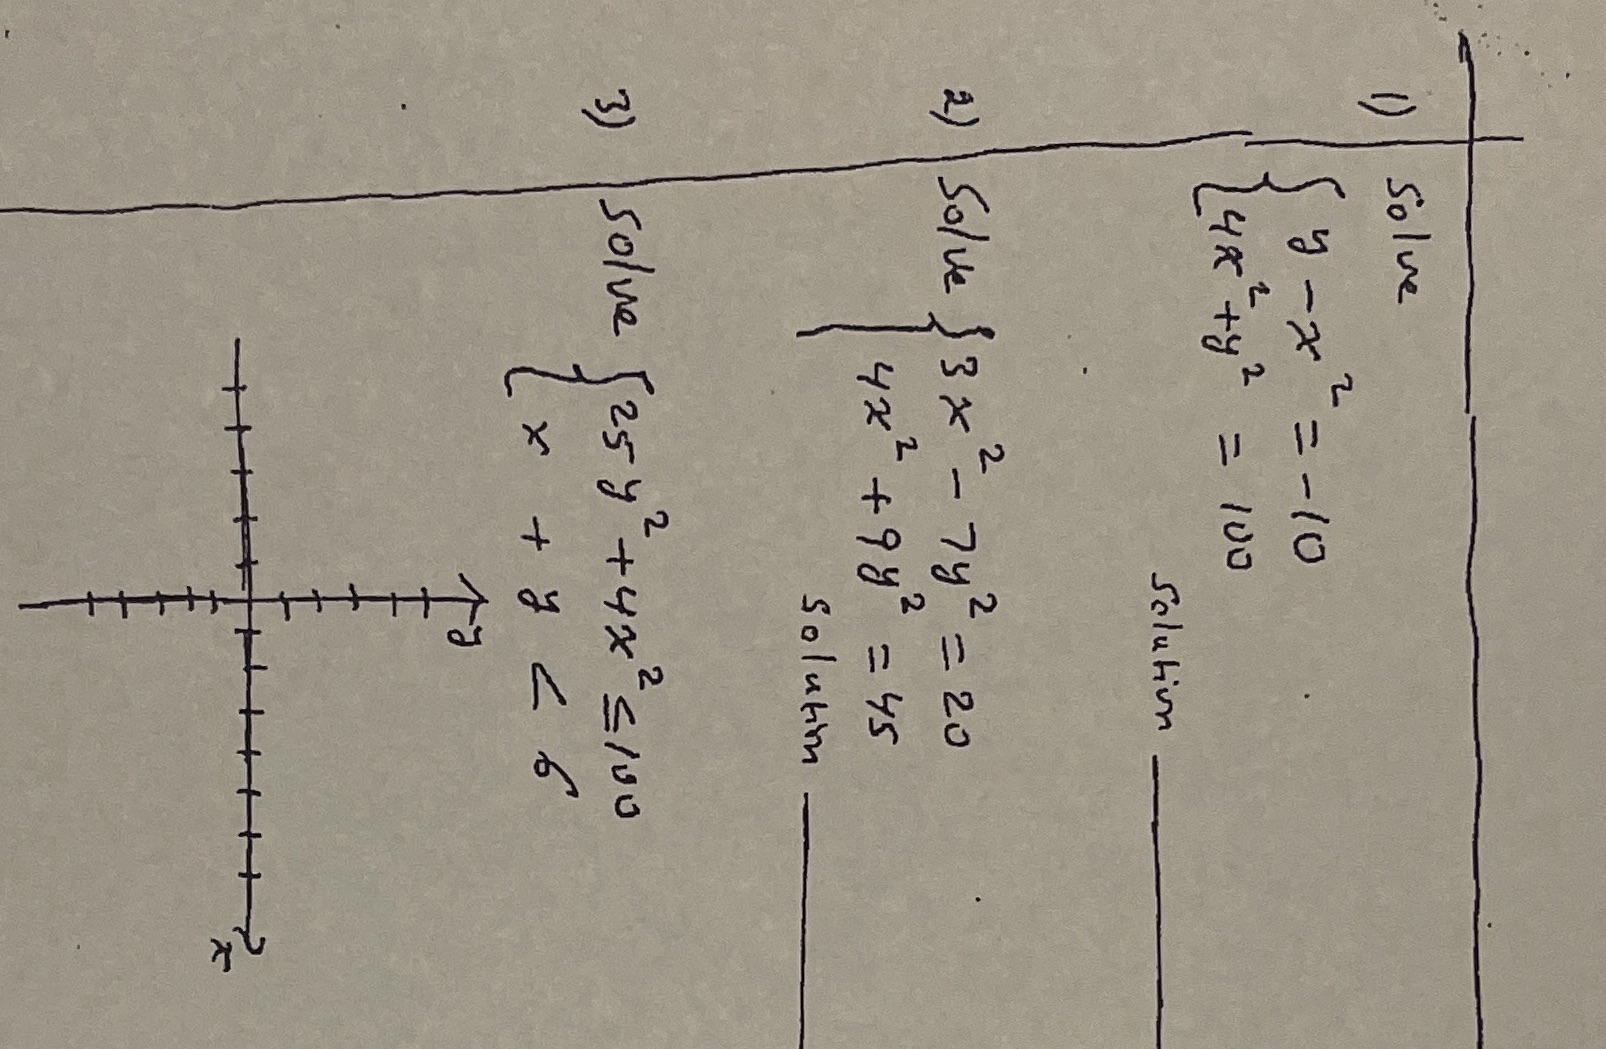 1) Solve
{ y - x² = -10
4x² + y² = 100
Solution
2) Solve { 3x² - 7y² = 20
4x² + 9y² = 45
Solution
3) Solve { 25y² + 4x² ≤ 100
x + y < 6
y
x